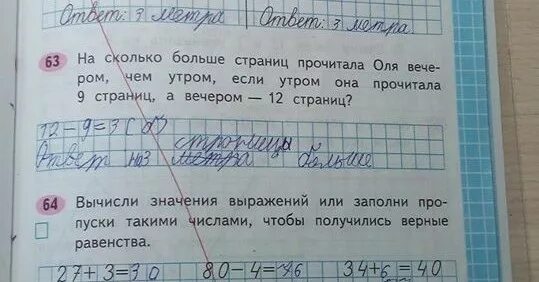 Ответ: 3 метра Ответ: 3 метра.
63 На сколько больше страниц прочитала Оля вече-
ром, чем утром, если утром она прочитала
9 страниц, а вечером — 12 страниц?
12-9=3(
страницы
Ответ на 3 метра больше
64 Вычисли значения выражений или заполни про-
пуски такими числами, чтобы получились верные
равенства.
27+3=30 80-4=76 34+6=40